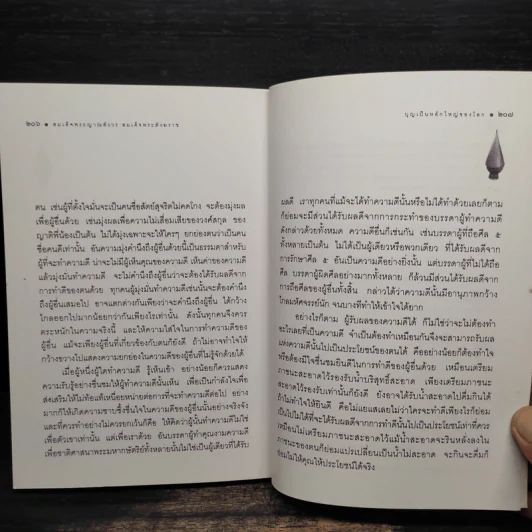 ๒๐๖ ● สมเด็จพระญาณสังวร สมเด็จพระสังฆราช
ตน เช่นผู้ที่ตั้งใจมั่นจะเป็นคนซื่อสัตย์สุจริตไม่คดโกง จะต้องมุ่งผล
เพื่อผู้อื่นด้วย เช่นมุ่งผลเพื่อความไม่เสื่อมเสียของวงศ์สกุล ของ
ญาติพี่น้องเป็นต้น ไม่ได้มุ่งเฉพาะจะให้ใครๆ ยกย่องตนว่าเป็นคน
ซื่อคนดีเท่านั้น อันความมุ่งคำนึงถึงผู้อื่นด้วยนี้เป็นธรรมดาสำหรับ
ผู้ที่จะทำความดี น่าจะไม่มีผู้เห็นคุณของความดี เห็นค่าของความดี
แล้วมุ่งมั่นทำความดี จะไม่คำนึงถึงผู้อื่นว่าจะต้องได้รับผลดีจาก
การทำดีของตนด้วย ทุกคนผู้มุ่งมั่นทำความดีเช่นนั้นจะต้องคำนึง
ถึงผู้อื่นเสมอไป อาจแตกต่างกันเพียงว่าจะคำนึงถึงผู้อื่น ได้กว้าง
ไกลออกไปมากน้อยกว่ากันเพียงไรเท่านั้น ดังนั้นทุกคนจึงควร
ตระหนักในความจริงนี้ และให้ความใส่ใจในการทำความดีของ
ผู้อื่น แม้จะเพียงผู้อื่นที่เกี่ยวข้องกับตนก็ยังดี ถ้าไม่อาจทำใจให้
กว้างขวางไปแสดงความยกย่องในความดีของผู้อื่นที่ไม่รู้จักด้วยได้
เมื่อผู้หนึ่งผู้ใดทำความดี รู้เห็นเข้า อย่างน้อยก็ควรแสดง
ความรับรู้อย่างชื่นชมให้ผู้ทำความดีนั้นเห็น เพื่อเป็นกำลังใจเพื่อ
ส่งเสริมให้ไม่ท้อแท้เหนื่อยหน่ายต่อการที่จะทำความดีต่อไป อย่าง
มากก็ให้เกิดความซาบซึ้งขึ้นใจในความดีของผู้อื่นนั้นอย่างจริงจัง
และที่ควรทำอย่างไม่ควรยกเว้นก็คือ ให้คิดว่าผู้นั้นทำความดีไม่ใช่
เพื่อตัวเขาเท่านั้น แต่เพื่อเราด้วย อันบรรดาผู้ทำคุณงามความดี
เพื่อชาติศาสนาพระมหากษัตริย์ทั้งหลายนั้นไม่ใช่เป็นผู้เดียวที่ได้รับ
บุญเป็นหลักใหญ่ของโลก ● ๒๐๗
ผลดี เราทุกคนที่แม้จะได้ทำความดีนั้นหรือไม่ได้ทำด้วยเลยก็ตาม
ก็ย่อมจะมีส่วนได้รับผลดีจากการกระทำของบรรดาผู้ทำความดี
ดังกล่าวด้วยทั้งหมด ความดีอื่นก็เช่นกัน เช่นบรรดาผู้ที่ถือศีล ๕
ทั้งหลายเป็นต้น ไม่ได้เป็นผู้เดียวหรือพวกเดียว ที่ได้รับผลดีจาก
การรักษาศีล ๕ อันเป็นความดีอย่างยิ่งนั้น แต่บรรดาผู้ที่ไม่ได้ถือ
ศีล บรรดาผู้ผิดศีลอย่างมากทั้งหลาย ก็ล้วนมีส่วนได้รับผลดีจาก
การถือศีลของผู้อื่นทั้งสิ้น กล่าวได้ว่าความดีนั้นมีอานุภาพกว้าง
ไกลมหัศจรรย์นัก จนบางทีทำให้เข้าใจได้ยาก
อย่างไรก็ตาม ผู้รับผลของความดีได้ ก็ไม่ใช่ว่าจะไม่ต้องทำ
อะไรเลยที่เป็นความดี จำเป็นต้องทำเหมือนกันจึงจะสามารถรับผล
แห่งความดีนั้นไปเป็นประโยชน์ของตนได้ คืออย่างน้อยก็ต้องทำใจ
หรือต้องมีใจชื่นชมยินดีในการทำความดีของผู้อื่นด้วย เหมือนเตรียม
ภาชนะสะอาดไว้รองรับน้ำบริสุทธิ์สะอาด เพียงเตรียมภาชนะ
สะอาดไว้รองรับเท่านั้นก็ยังดี ยังอาจได้รับน้ำสะอาดไปดื่มกินได้
ถ้าไม่ทำใจให้ยินดี คือไม่แยแสเลยไม่ว่าใครจะทำดีเพียงไรก็ย่อม
เป็นไปไม่ได้ที่จะได้รับผลจากการทำดีนั้นไปเป็นประโยชน์เท่าที่ควร
เหมือนไม่เตรียมภาชนะสะอาดไว้แม้น้ำสะอาดจะรินหลั่งลงใน
ภาชนะของตนก็ย่อมแปรเปลี่ยนเป็นน้ำไม่สะอาด จะกินจะดื่มก็
ย่อมไม่ให้คุณให้ประโยชน์ได้จริง